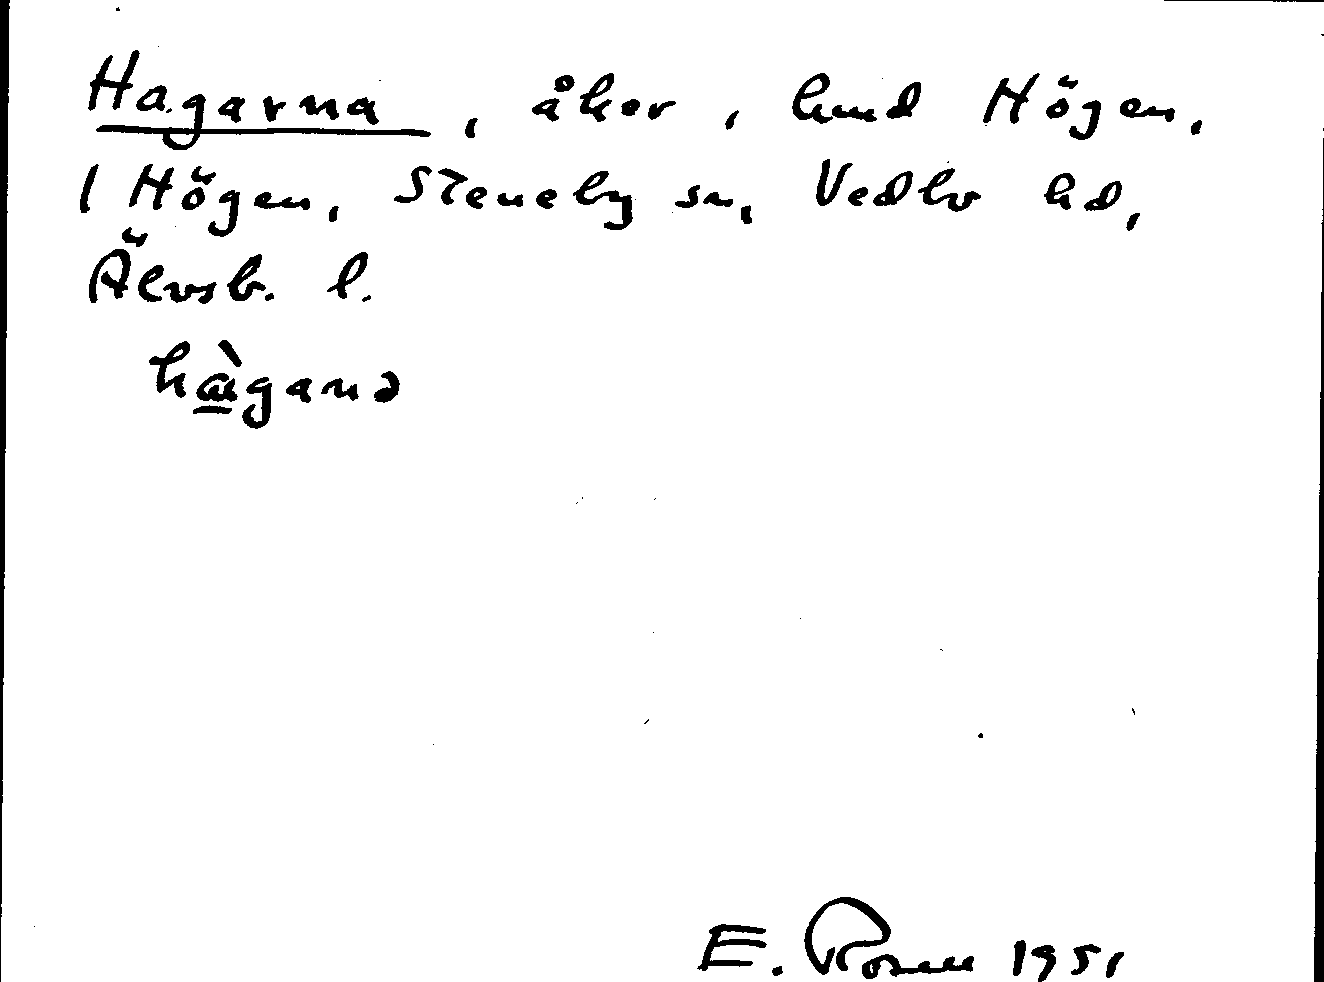 Hagarna, åker, hmd Högen,
1 Högen, Steneby sn, Vedbo hd,
Älvsb. l.
hàganə
E. Rosell 1951